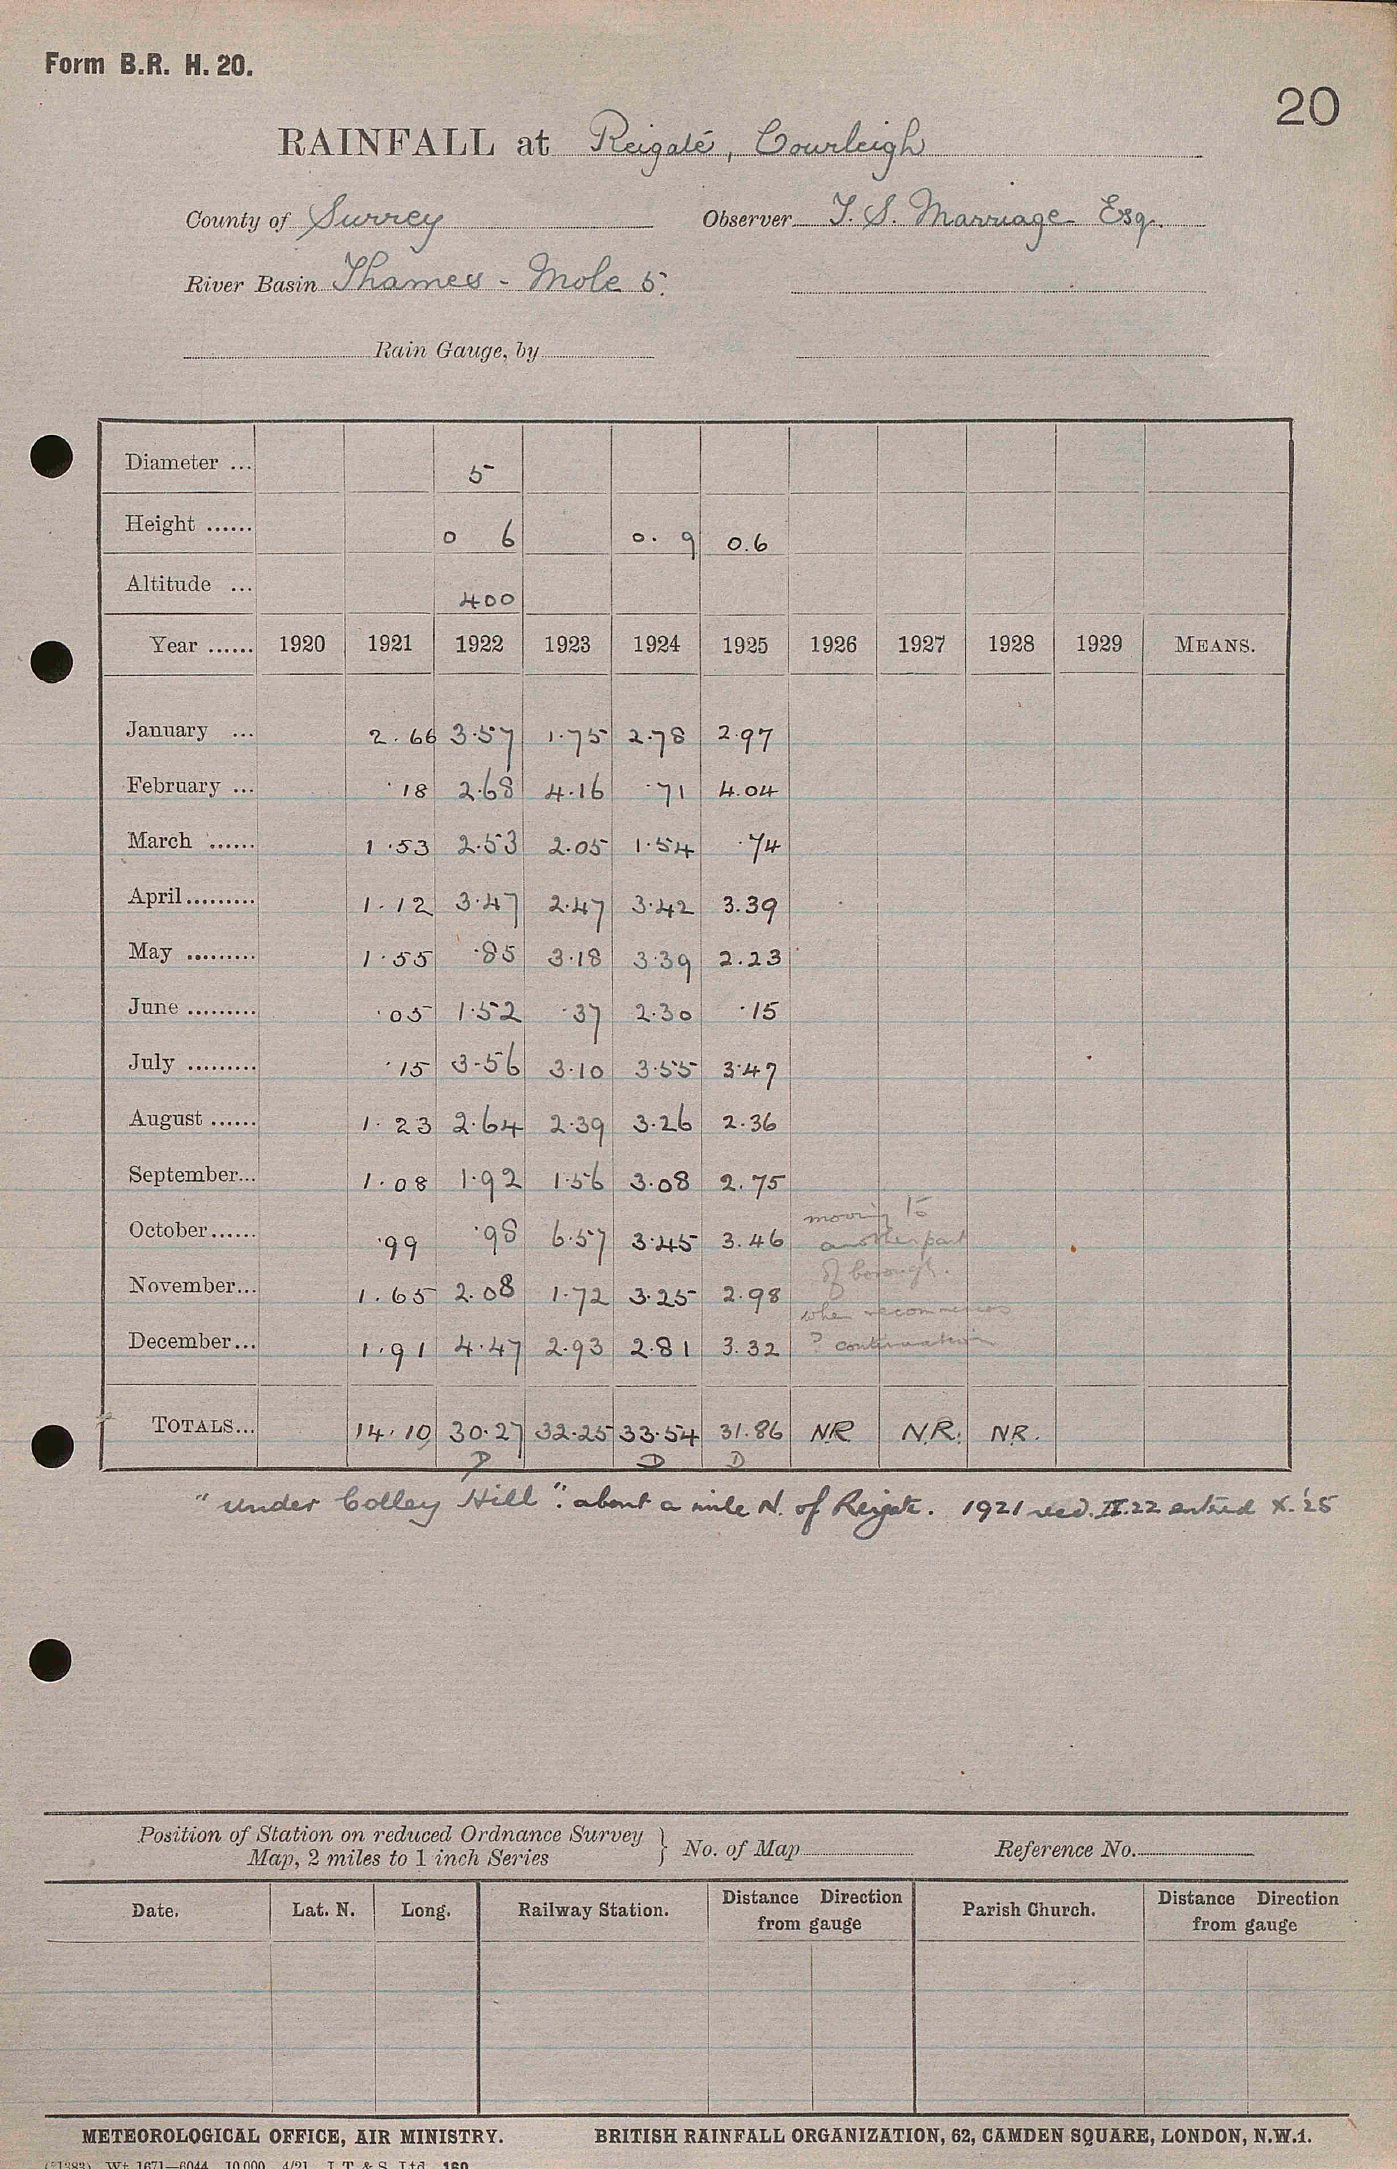 Form B.R. H. 20.
20
RAINFALL at Reigate, Courleigh
County of Surrey Observer T. S. Marriage Esq.
River Basin Thames - Mole 5.
Rain Gauge, by
Diameter ... 5
Height ...... 0 6 0. 9 0.6
Altitude ... 400
Year ...... 1920 1921 1922 1923 1924 1925 1926 1927 1928 1929 MEANS.
January ... 2.66 3.57 1.75 2.78 2.97
February ... .18 2.68 4.16 .71 4.04
March ...... 1.53 2.53 2.05 1.54 .74
April......... 1.12 3.47 2.47 3.42 3.39
May ......... 1.55 .85 3.18 3.39 2.23
June ......... .05 1.52 .37 2.30 .15
July ......... .15 3.56 3.10 3.55 3.47
August ...... 1.23 2.64 2.39 3.26 2.36
September... 1.08 1.92 1.56 3.08 2.75
moving to
October...... .99 .98 6.57 3.45 3.46 another part
of borough.
November... 1.65 2.08 1.72 3.25 2.98
when recommences
December... 1.91 4.47 2.93 2.81 3.32 ? continuation
TOTALS... 14.10 30.27 32.25 33.54 31.86 NR N.R. N.R.
D D D
"under Colley Hill". about a mile N. of Reigate. 1921 recd. II.22 entred X.'25
Position of Station on reduced Ordnance Survey
Map, 2 miles to 1 inch Series } No. of Map Reference No.
Date. Lat. N. Long. Railway Station. Distance Direction from gauge Parish Church. Distance Direction from gauge
METEOROLOGICAL OFFICE, AIR MINISTRY. BRITISH RAINFALL ORGANIZATION, 62, CAMDEN SQUARE, LONDON, N.W.1.
Wt. 1671—6044 10,000 4/21 J. T. & S. Ltd. 160